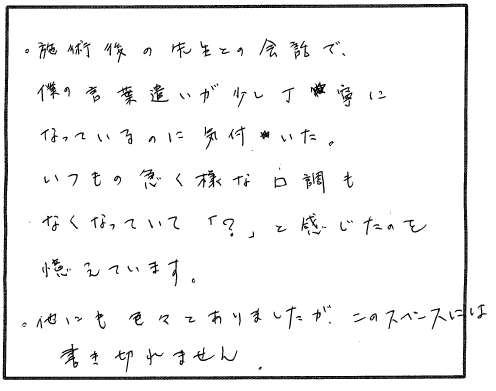 。施術後の先生との会話で、
僕の言葉遣いが少し丁寧に
なっているのに気付いた。
いつもの急く様な口調も
なくなっていて「?」と感じたのを
憶えています。
。他にも色々とありましたが、このスペースには
書き切れません.